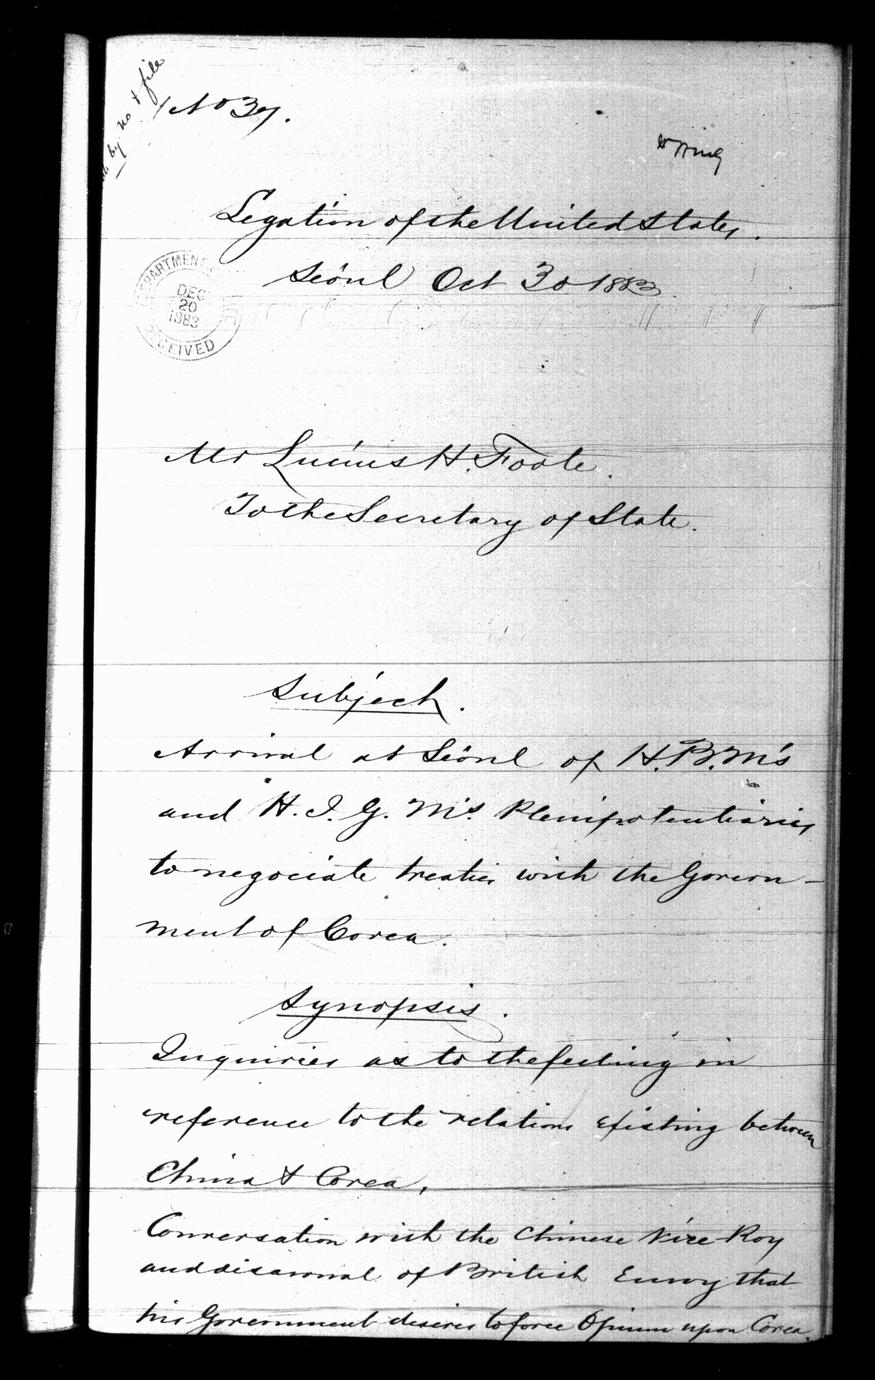 by no & file
No 37.
Legation of the United States.
Séoul Oct 30 1883
DEPARTMENT
DEC
20
1883
RECEIVED
Mr Lucius H. Foote.
To the Secretary of State.
Subject.
Arrival at Séoul of H.B.M's
and H. I. G. M's Plenipotentiaries
to negociate treaties with the Govern-
ment of Corea.
Synopsis.
Inquiries as to the feeling in
reference to the relations existing between
China & Corea.
Conversation with the Chinese Vice-Roy
and disavowal of British Envoy that
his Government desires to force Opium upon Corea.